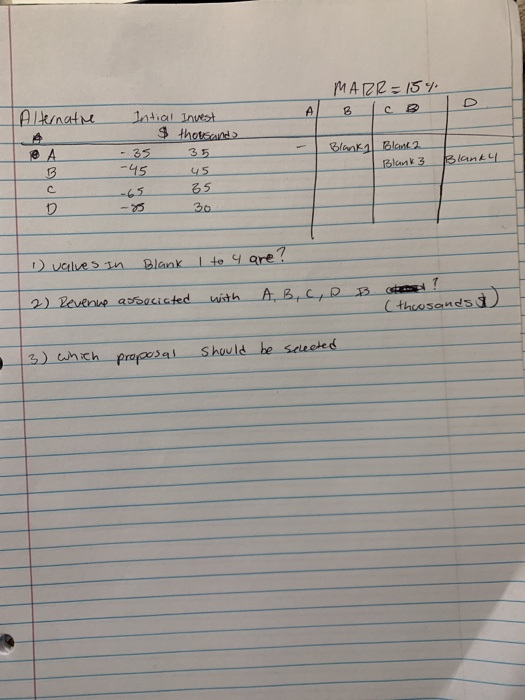 MARR = 15%
Alternative Intial Invest A B C D
$ thousands
A -35 35 - Blank 1 Blank 2
B -45 45 Blank 3 Blank 4
C -65 85
D 30
1) values in Blank 1 to 4 are?
2) Revenue associated with A, B, C, D ?
(thousands $)
3) which proposal should be selected